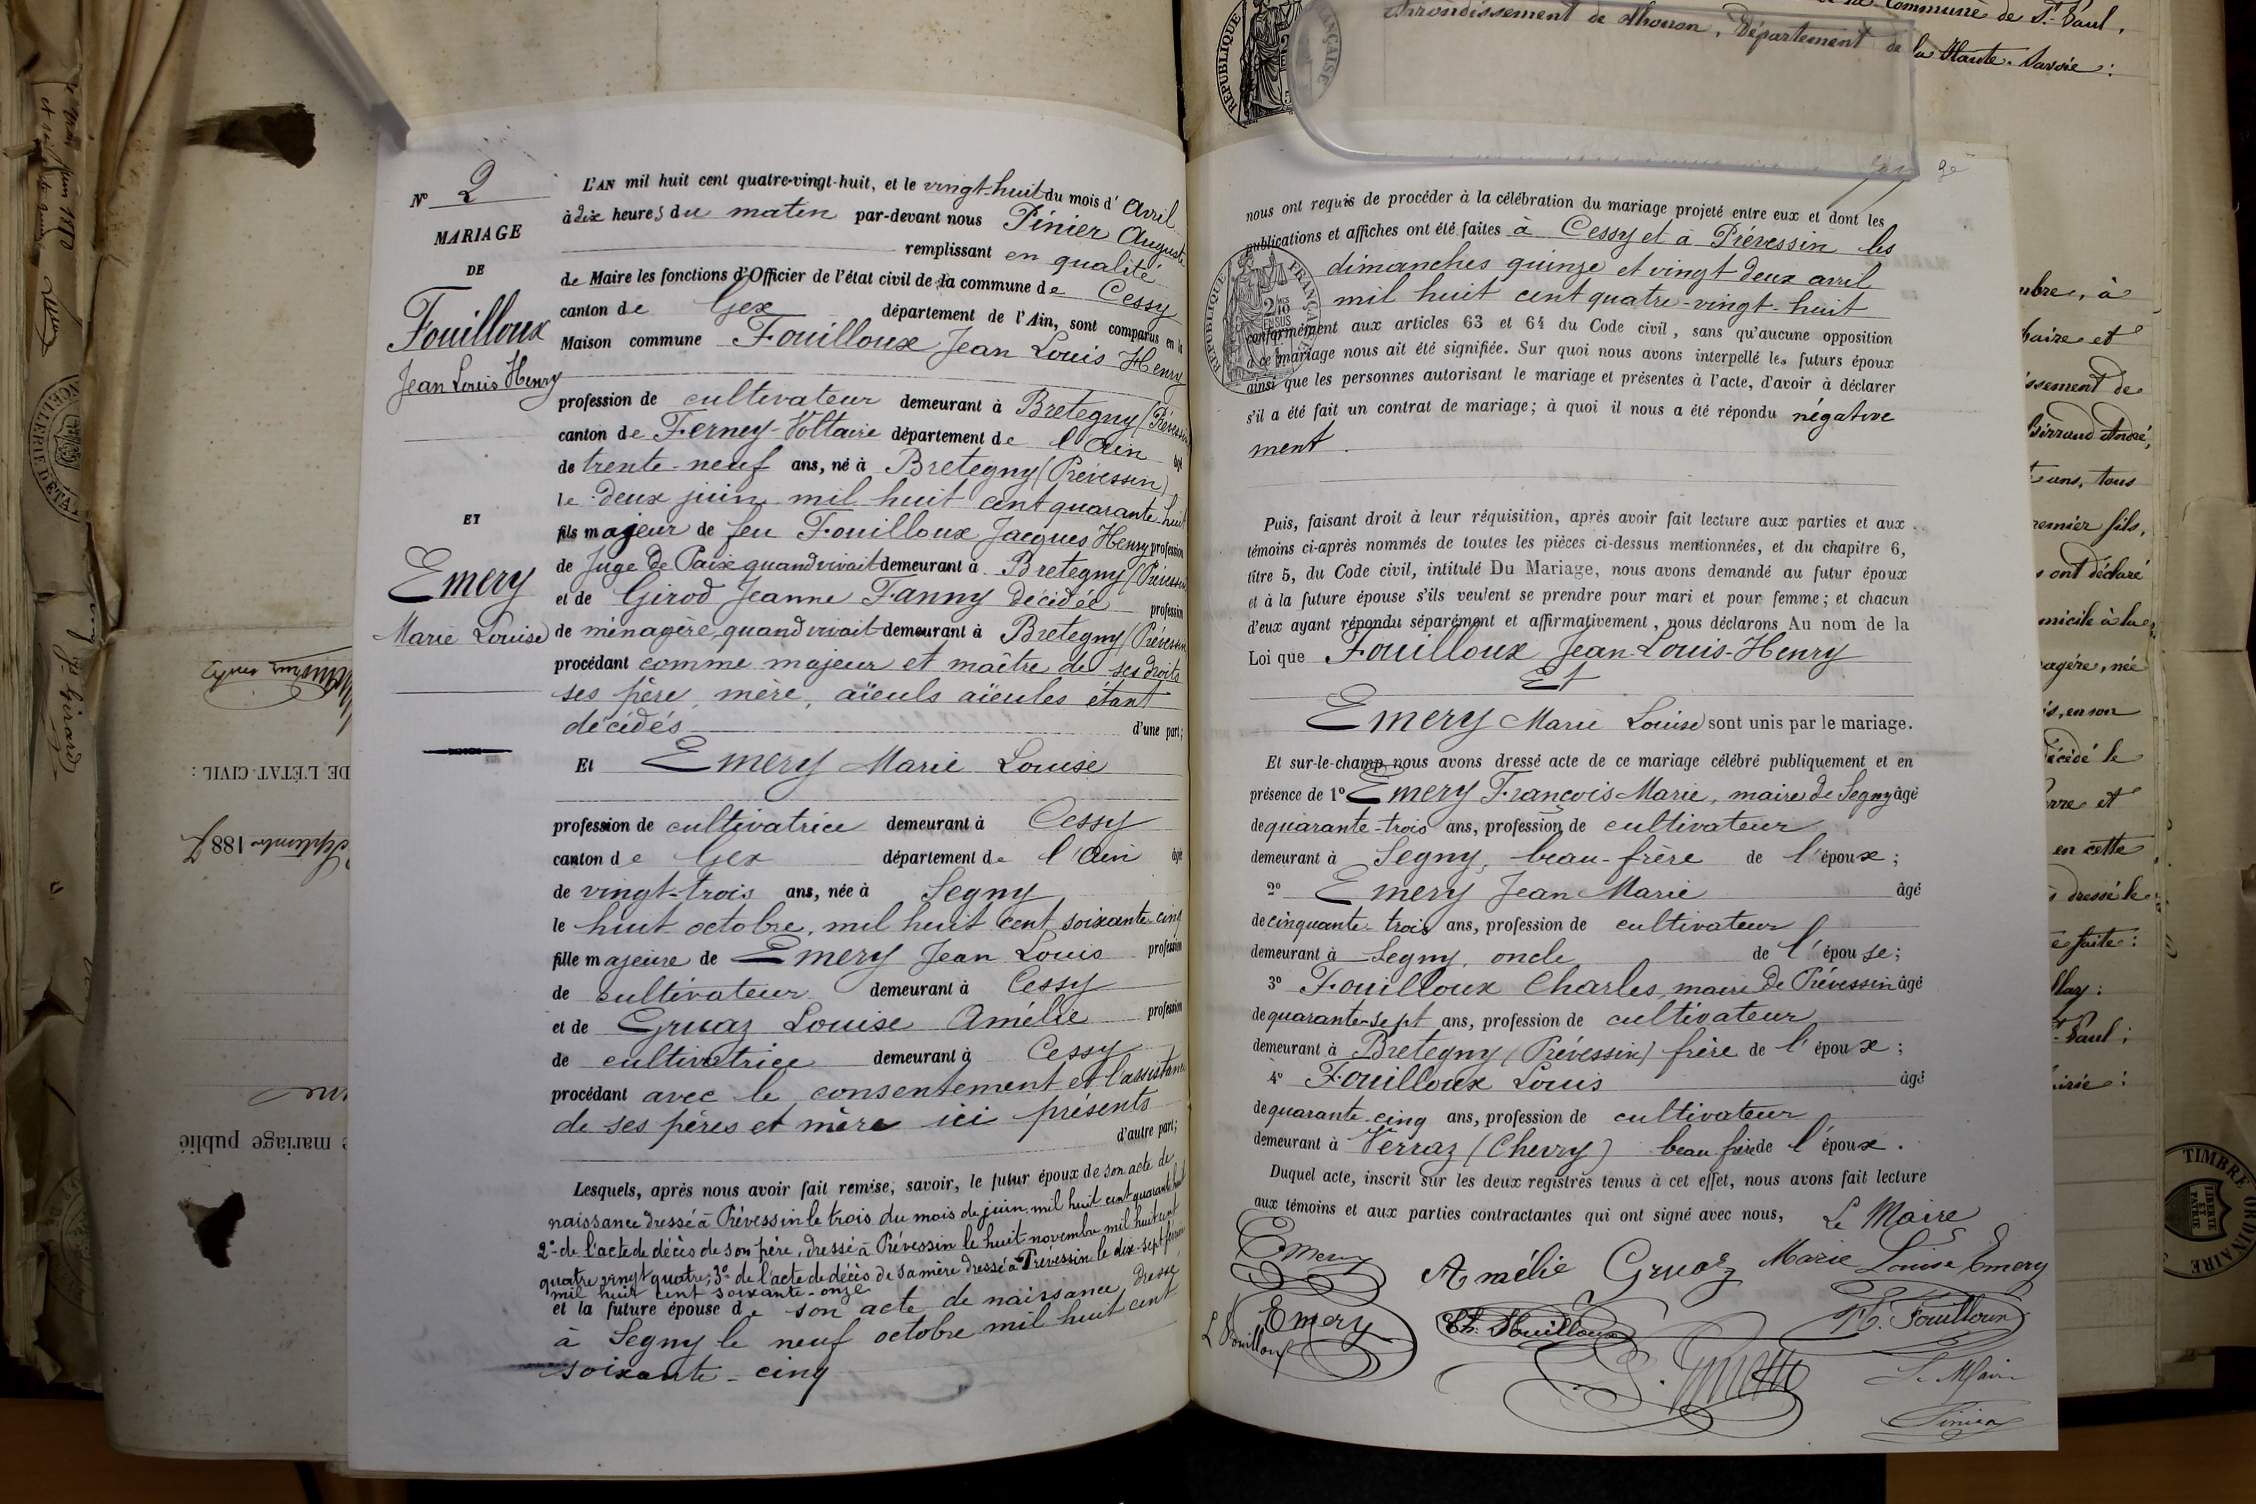 Nº 2
MARIAGE
DE
Fouilloux
Jean Louis Henry
ET
Emery
Marie Louise
L'AN mil huit cent quatre-vingt-huit, et le vingt-huit du mois d'Avril
à dix heures du matin par-devant nous Pinier Auguste
remplissant en qualité
de Maire les fonctions d'Officier de l'état civil de la commune de Cessy
canton de Gex département de l'Ain, sont comparus en la
Maison commune Fouilloux Jean Louis Henry
profession de cultivateur demeurant à Bretegny (Prévessin
canton de Ferney-Voltaire département de l'Ain âgé
de trente-neuf ans, né à Bretegny (Prévessin)
le deux juin mil huit cent quarante-huit
fils majeur de feu Fouilloux Jacques Henry profession
de Juge de Paix quand vivait demeurant à Bretegny (Prévessin
et de Girod Jeanne Fanny décédée profession
de ménagère, quand vivait demeurant à Bretegny (Prévessin
procédant comme majeur et maître de ses droits
ses père, mère, aïeuls aïeules étant
décédés d'une part;
Et Emery Marie Louise
profession de cultivatrice demeurant à Cessy
canton de Gex département de l'Ain âgée
de vingt-trois ans, née à Segny
le huit octobre, mil huit cent soixante-cinq
fille majeure de Emery Jean Louis profession
de cultivateur demeurant à Cessy
et de Gruaz Louise Amélie profession
de cultivatrice demeurant à Cessy
procédant avec le consentement et l'assistance
de ses pères et mère ici présents
d'autre part;
Lesquels, après nous avoir fait remise, savoir, le futur époux de son acte de
naissance dressé à Prévessin le trois du mois de juin mil huit cent quarante huit
2º de l'acte de décès de son père, dressé à Prévessin le huit novembre mil huit cent
quatre vingt quatre; 3º de l'acte de décès de sa mère dressé à Prévessin le dix-sept février
mil huit cent soixante-onze
et la future épouse de son acte de naissance dressé
à Segny le neuf octobre mil huit cent
soixante-cinq
nous ont requis de procéder à la célébration du mariage projeté entre eux et dont les
publications et affiches ont été faites à Cessy et à Prévessin les
dimanches quinze et vingt deux avril
mil huit cent quatre-vingt-huit
conformément aux articles 63 et 64 du Code civil, sans qu'aucune opposition
à ce mariage nous ait été signifiée. Sur quoi nous avons interpellé les futurs époux
ainsi que les personnes autorisant le mariage et présentes à l'acte, d'avoir à déclarer
s'il a été fait un contrat de mariage; à quoi il nous a été répondu négative
ment.
Puis, faisant droit à leur réquisition, après avoir fait lecture aux parties et aux
témoins ci-après nommés de toutes les pièces ci-dessus mentionnées, et du chapitre 6,
titre 5, du Code civil, intitulé Du Mariage, nous avons demandé au futur époux
et à la future épouse s'ils veulent se prendre pour mari et pour femme; et chacun
d'eux ayant répondu séparément et affirmativement, nous déclarons Au nom de la
Loi que Fouilloux Jean-Louis-Henry
Et
Emery Marie Louise sont unis par le mariage.
Et sur-le-champ nous avons dressé acte de ce mariage célébré publiquement et en
présence de 1º Emery François Marie, maire de Segny âgé
de quarante-trois ans, profession de cultivateur
demeurant à Segny, beau-frère de l'époux;
2º Emery Jean Marie âgé
de cinquante-trois ans, profession de cultivateur
demeurant à Segny, oncle de l'épouse;
3º Fouilloux Charles, maire de Prévessin âgé
de quarante-sept ans, profession de cultivateur
demeurant à Bretegny (Prévessin) frère de l'époux;
4º Fouilloux Louis âgé
de quarante-cinq ans, profession de cultivateur
demeurant à Verraz (Chevry) beau frère de l'époux.
Duquel acte, inscrit sur les deux registres tenus à cet effet, nous avons fait lecture
aux témoins et aux parties contractantes qui ont signé avec nous, Le Maire
Emery Amélie Gruaz Marie Louise Emery
Emery Ch. Fouilloux H. Fouilloux
L Fouilloux
Le Maire
Pinier
Arrondissement de Thonon, Département de la Haute-Savoie:
commune de St-Paul,
RÉPUBLIQUE FRANÇAISE
TIMBRE ORDINAIRE
DE L'ÉTAT CIVIL:
mariage publié